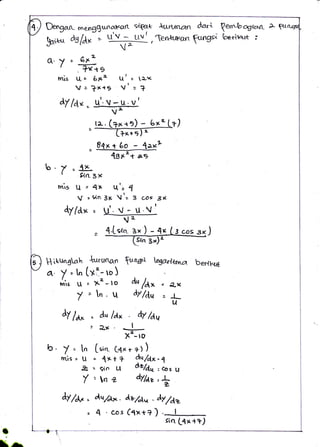 4. Dengan menggunakan sifat turunan dari Pembagian 2 fungsi
yaitu dy/dx = u'v - uv' / v² , Tentukan fungsi berikut :
a. y = 6x² / 7x+5
mis u = 6x² u' = 12x
v = 7x+5 v' = 7
dy/dx = u'·v - u·v' / v²
= 12.(7x+5) - 6x²(7) / (7x+5)²
= 84x + 60 - 42x² / 48x² + 25
b. y = 4x / sin 3x
mis u = 4x u' = 4
v = sin 3x v' = 3 cos 3x
dy/dx = u'.v - u.v' / v²
= 4(sin 3x) - 4x (3 cos 3x) / (sin 3x)²
5. Hitunglah turunan fungsi logaritma berikut
a. y = ln (x²-10)
mis u = x²-10 du/dx = 2x
y = ln . u dy/du = 1/u
dy/dx = du/dx . dy/du
= 2x . 1 / x²-10
b. y = ln (sin (4x+7))
mis = u = 4x+7 du/dx = 4
z = sin u dz/du = cos u
y = ln z dy/dz = 1/z
dy/dx = du/dx . dz/du . dy/dz
= 4 . cos (4x+7) . 1 / sin (4x+7)